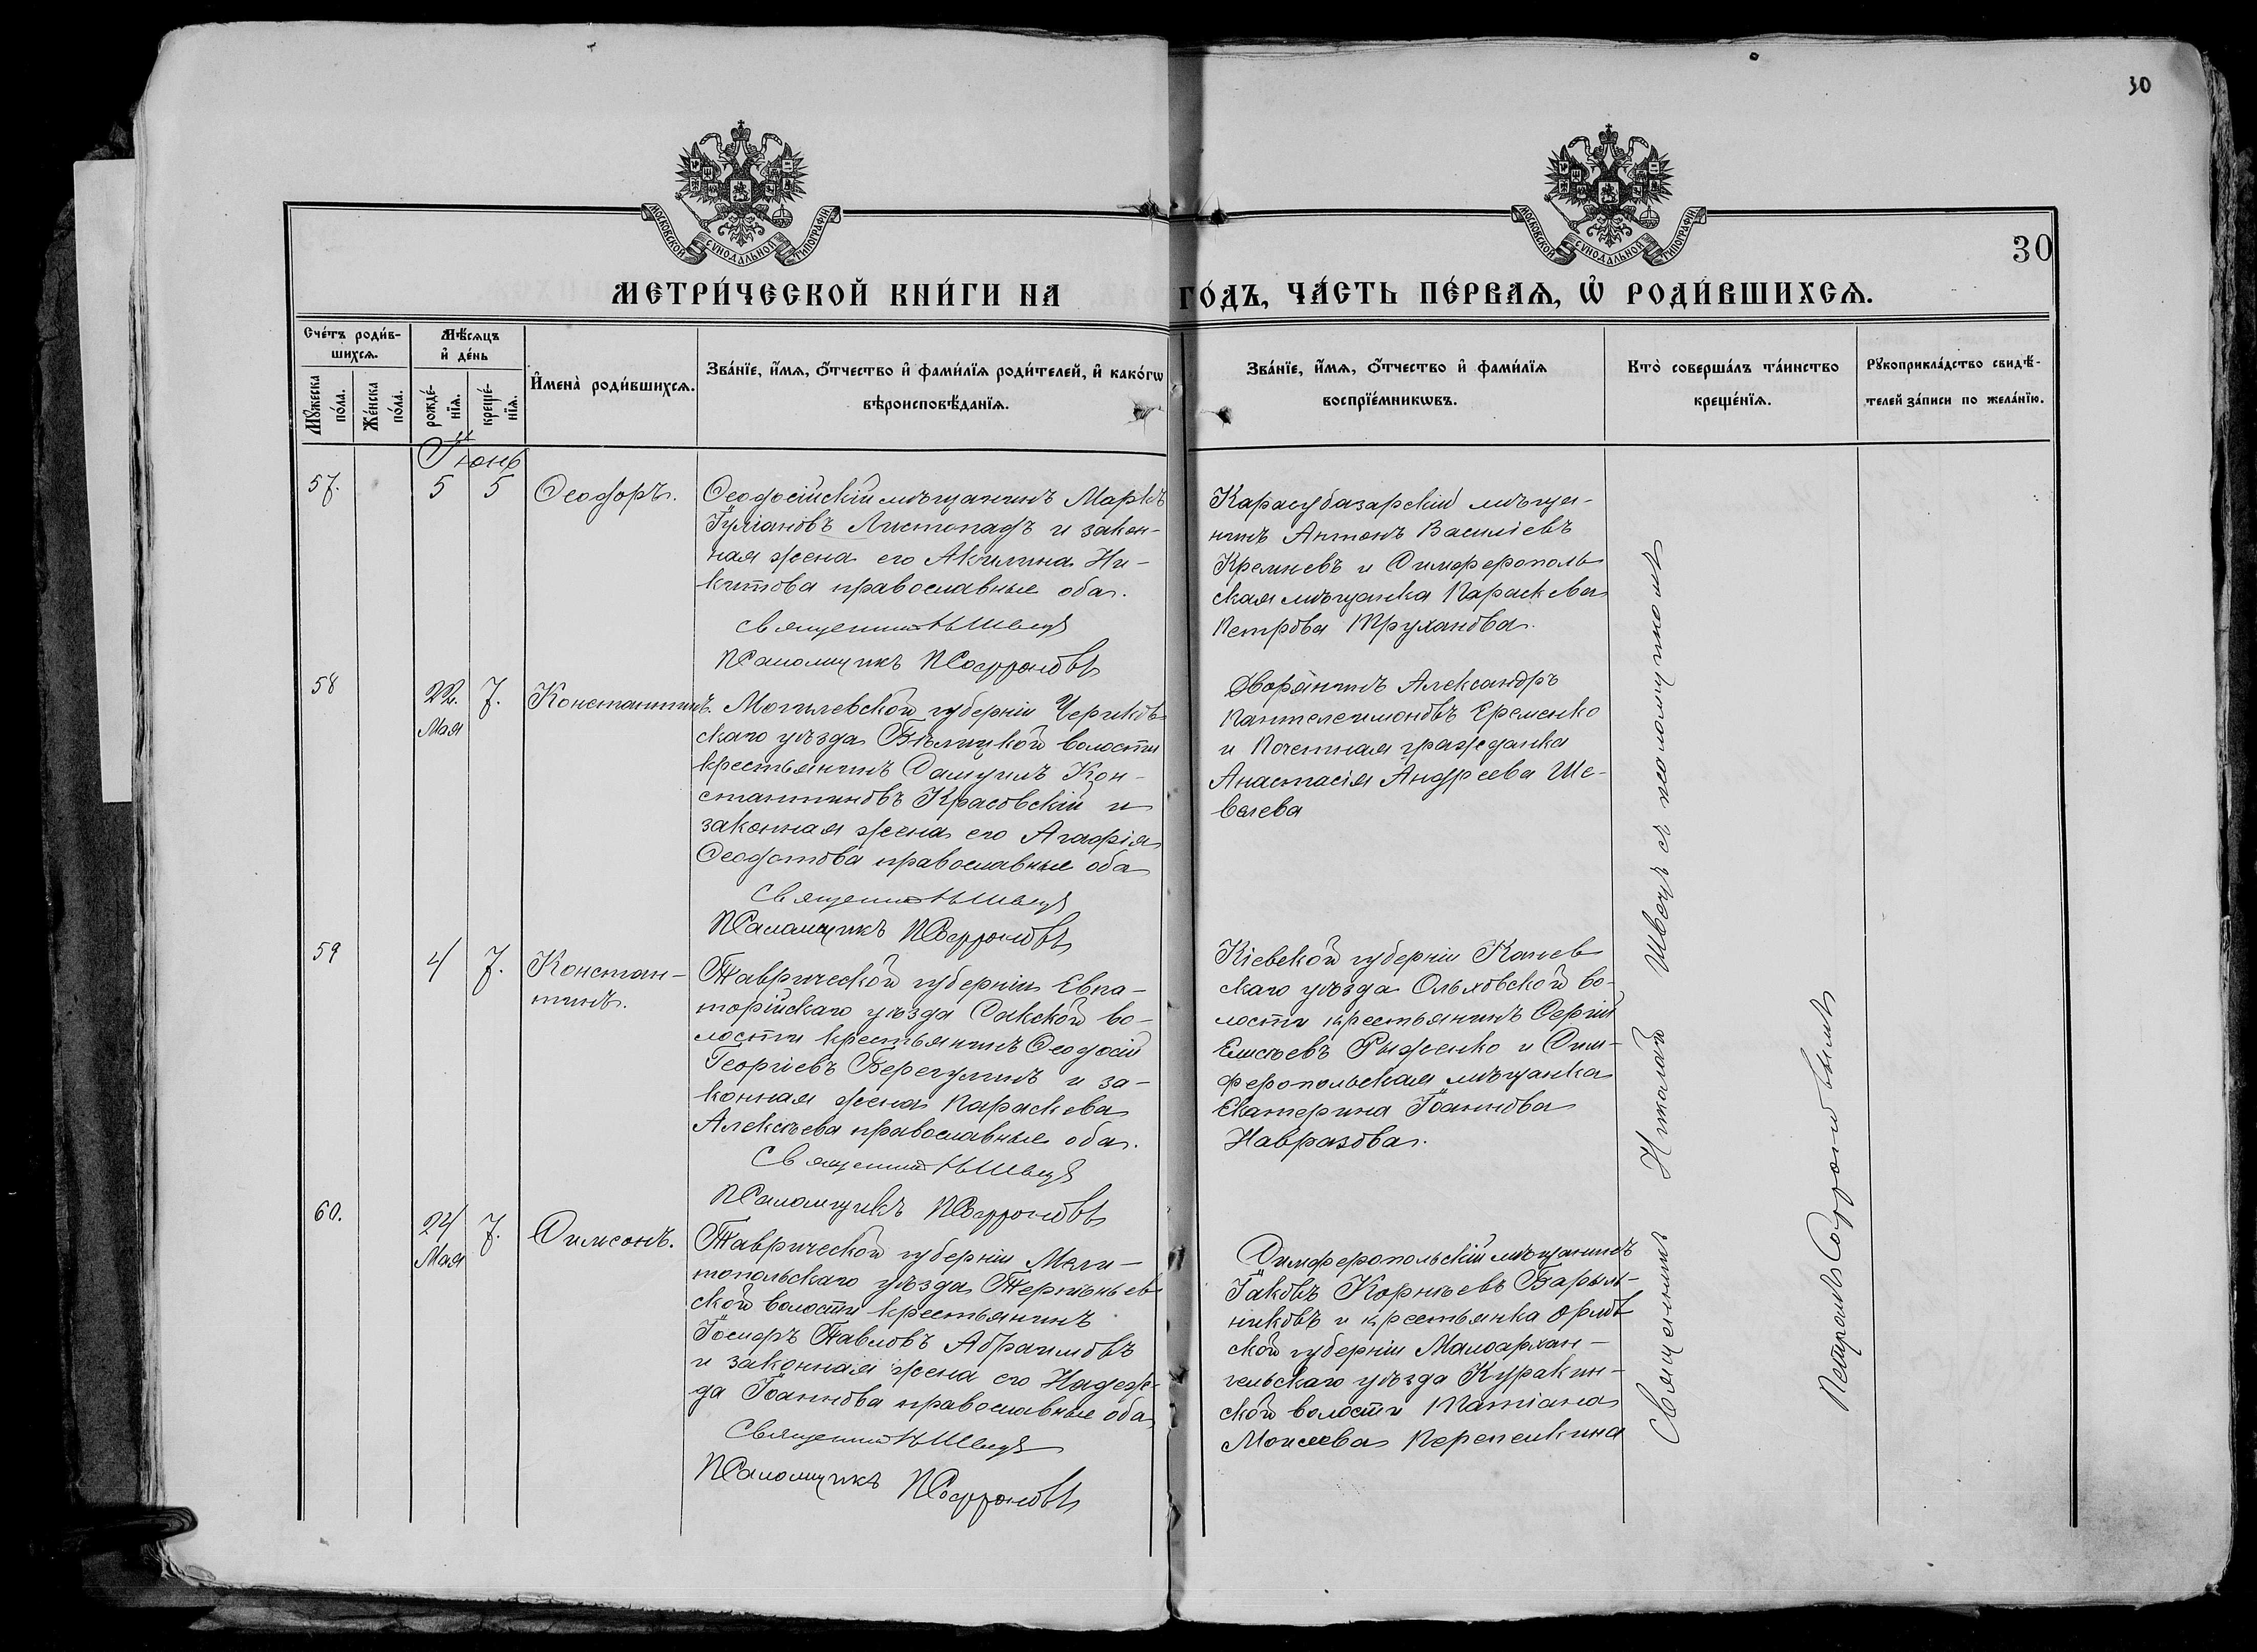 30
МОСКОВСКОЙ СѴНОДАЛЬНОЙ ТИПОГРАФІИ
МОСКОВСКОЙ СѴНОДАЛЬНОЙ ТИПОГРАФІИ
30
МЕТРИ́ЧЕСКОЙ КНИ́ГИ НА ГО́ДЪ, ЧА́СТЬ ПЕ́РВАѦ, Ѡ҆ РОДИ́ВШИХСѦ.
Сче́тъ роди́в-
шихсѧ.
Мѣ́сѧцъ
и҆ де́нь
Мꙋ́жеска
по́ла.
Же́нска
по́ла.
рожде́-
нїѧ.
креще́-
нїѧ.
И҆мена̀ роди́вшихсѧ.
Зва́нїе, и҆́мѧ, ѻ҆́тчество и҆ фами́лїѧ роди́телей, и҆ како́гѡ
вѣроисповѣ́данїѧ.
Зва́нїе, и҆́мѧ, ѻ҆́тчество и҆ фами́лїѧ
воспрїе́мникѡвъ.
Кто̀ соверша́лъ та́инство
креще́нїѧ.
Рꙋкоприкла́дство свидѣ́-
телей за́писи по жела́нїю.
Іюнь
57.
5
5
Ѳеодоръ.
Ѳеодосійскій мѣщанинъ Маркъ
Іуліановъ Листопадъ и закон-
ная жена его Акилина Ни-
китова православные оба.
Священникъ Н Швецъ
Псаломщикъ П Софроновъ
Карасубазарскій мѣща-
нинъ Антонъ Василіевъ
Кремневъ и Симферополь
ская мѣщанка Параскева
Петрова Труханова.
58
22.
Мая
7.
Константинъ.
Могилевской губерніи Чериков
скаго уѣзда Бѣлицкой волости
крестьянинъ Самуилъ Кон-
стантиновъ Красовскій и
законная жена его Агафія
Ѳеодотова православные оба
Священникъ Н Швецъ
Псаломщикъ П Софроновъ
Дворянинъ Александръ
Пантелеимоновъ Еременко
и Почетная гражданка
Анастасія Андреева Ше-
велева
59
4
7.
Констан-
тинъ.
Таврической губерніи Евпа-
торійскаго уѣзда Сакской во-
лости крестьянинъ Ѳеодосій
Георгіевъ Верегулинъ и за-
конная жена Параскева
Алексѣева православные оба.
Священникъ Н Швецъ
Псаломщикъ П Софроновъ
Кіевской губерніи Канев
скаго уѣзда Ольховской во-
лости крестьянинъ Сергій
Елисѣевъ Рыженко и Сим-
феропольская мѣщанка
Екатерина Іоаннова
Навразова.
60.
24
Мая
7.
Симеонъ.
Таврической губерніи Мели-
топольскаго уѣзда Терпѣньев
ской волости крестьянинъ
Іосифъ Павловъ Абраимовъ
и законная жена его Надеж-
да Іоаннова православные оба
Священникъ Н Швецъ
Псаломщикъ П Софроновъ
Симферопольскій мѣщанинъ
Іаковъ Корнѣевъ Барыль-
никовъ и крестьянка Орлов
ской губерніи Малоархан-
гельскаго уѣзда Куракин-
ской волости Татіана
Моисеева Перепелкина
Священникъ Николай Швецъ съ псаломщикомъ
Петромъ Софроновымъ